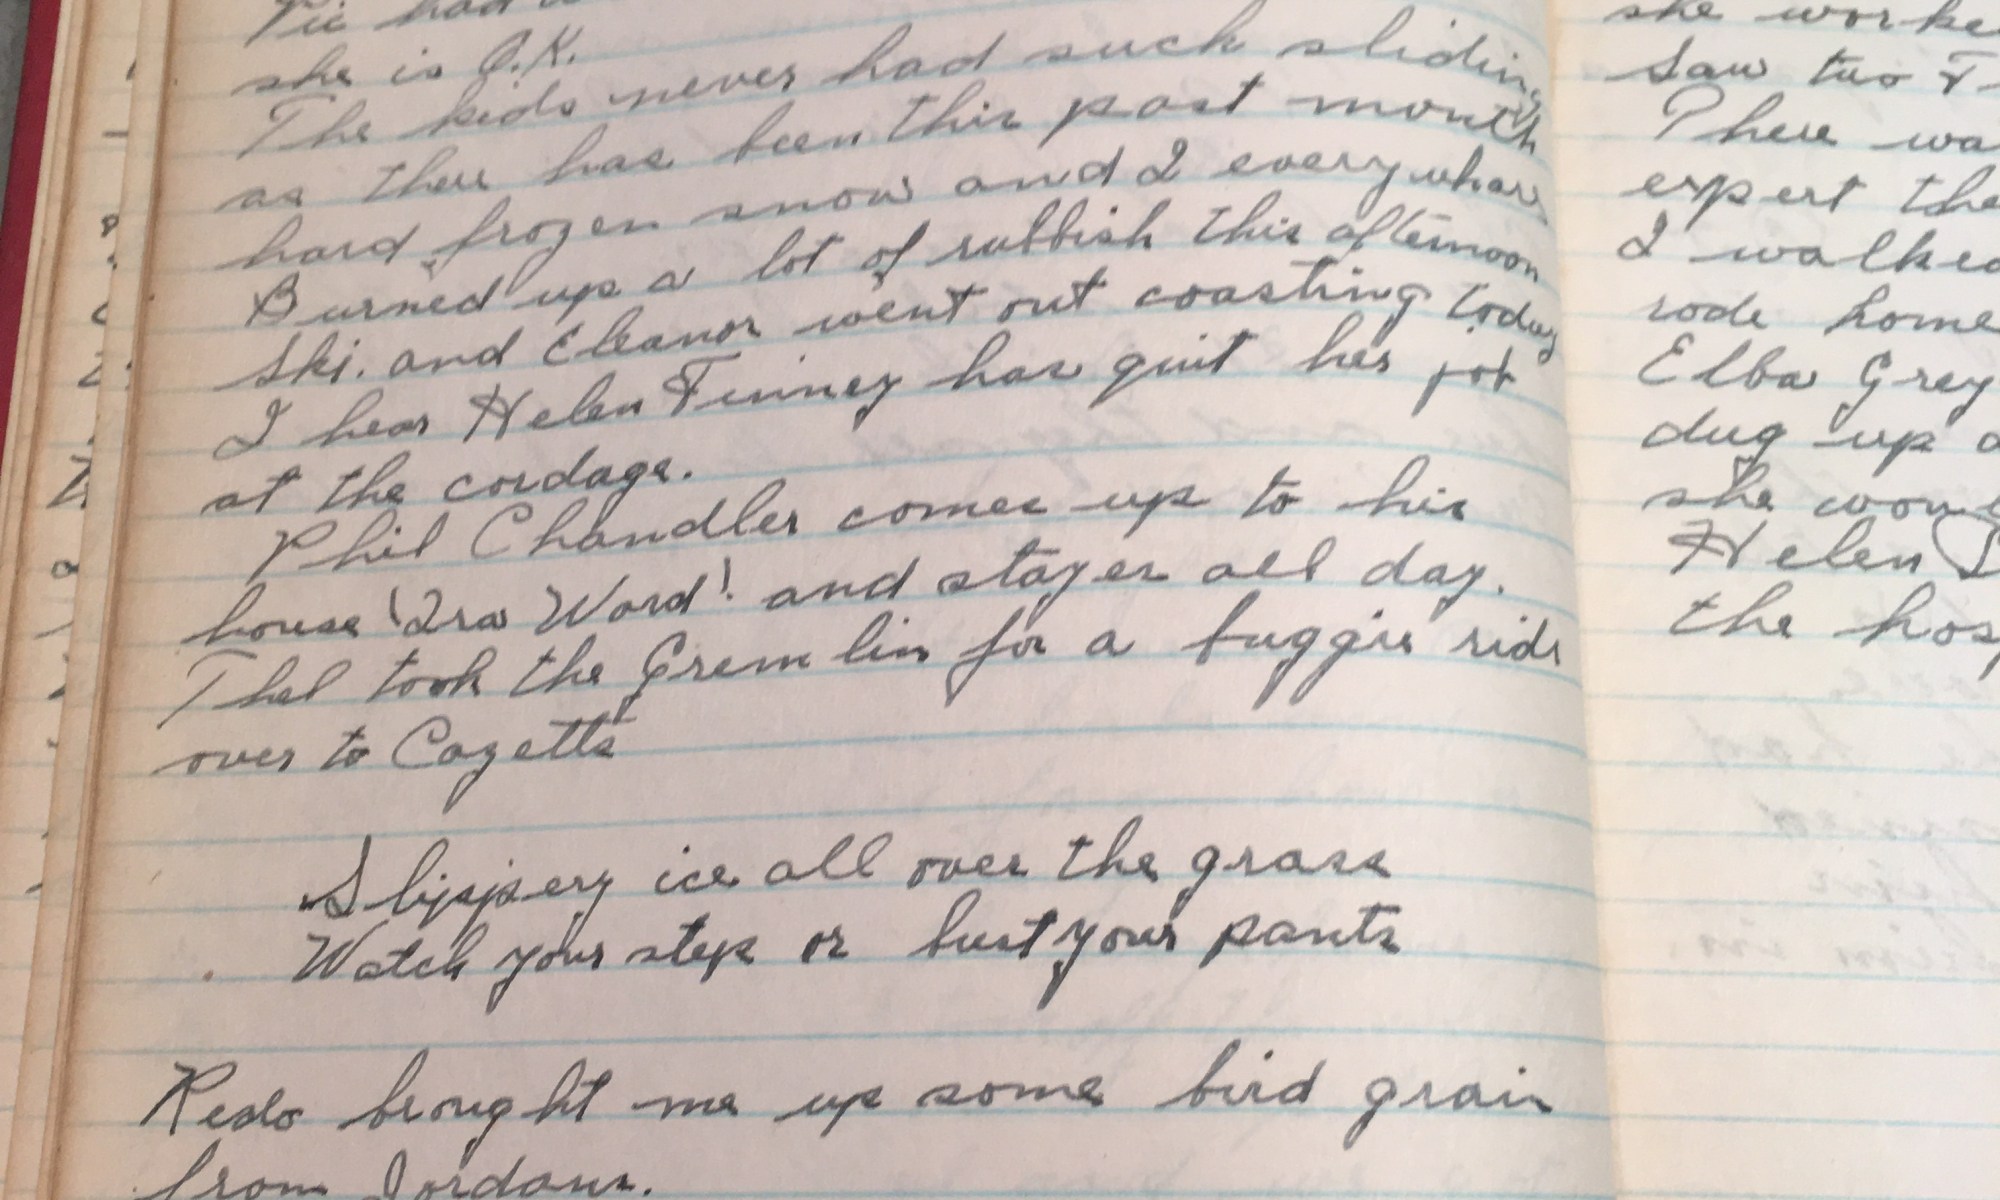 she is O.K.
The kids never had such sliding
as there has been this past month
hard frozen snow and I everywhare
Burned up a lot of rubbish this afternoon
Ski. and Eleanor went out coasting today
I hear Helen Finney has quit her job
at the cordage.
Phil Chandler comes up to his
house 'Ira Ward' and stayes all day.
Thel took the Gremlin for a buggie ride
over to Cazetts
Slippery ice all over the grass
Watch your step or bust your pants
Redo brought me up some bird grain
from Jordans.
she
Saw two
There
expert the
I walked
rode home
Elba Grey
dug up
she
Helen
the